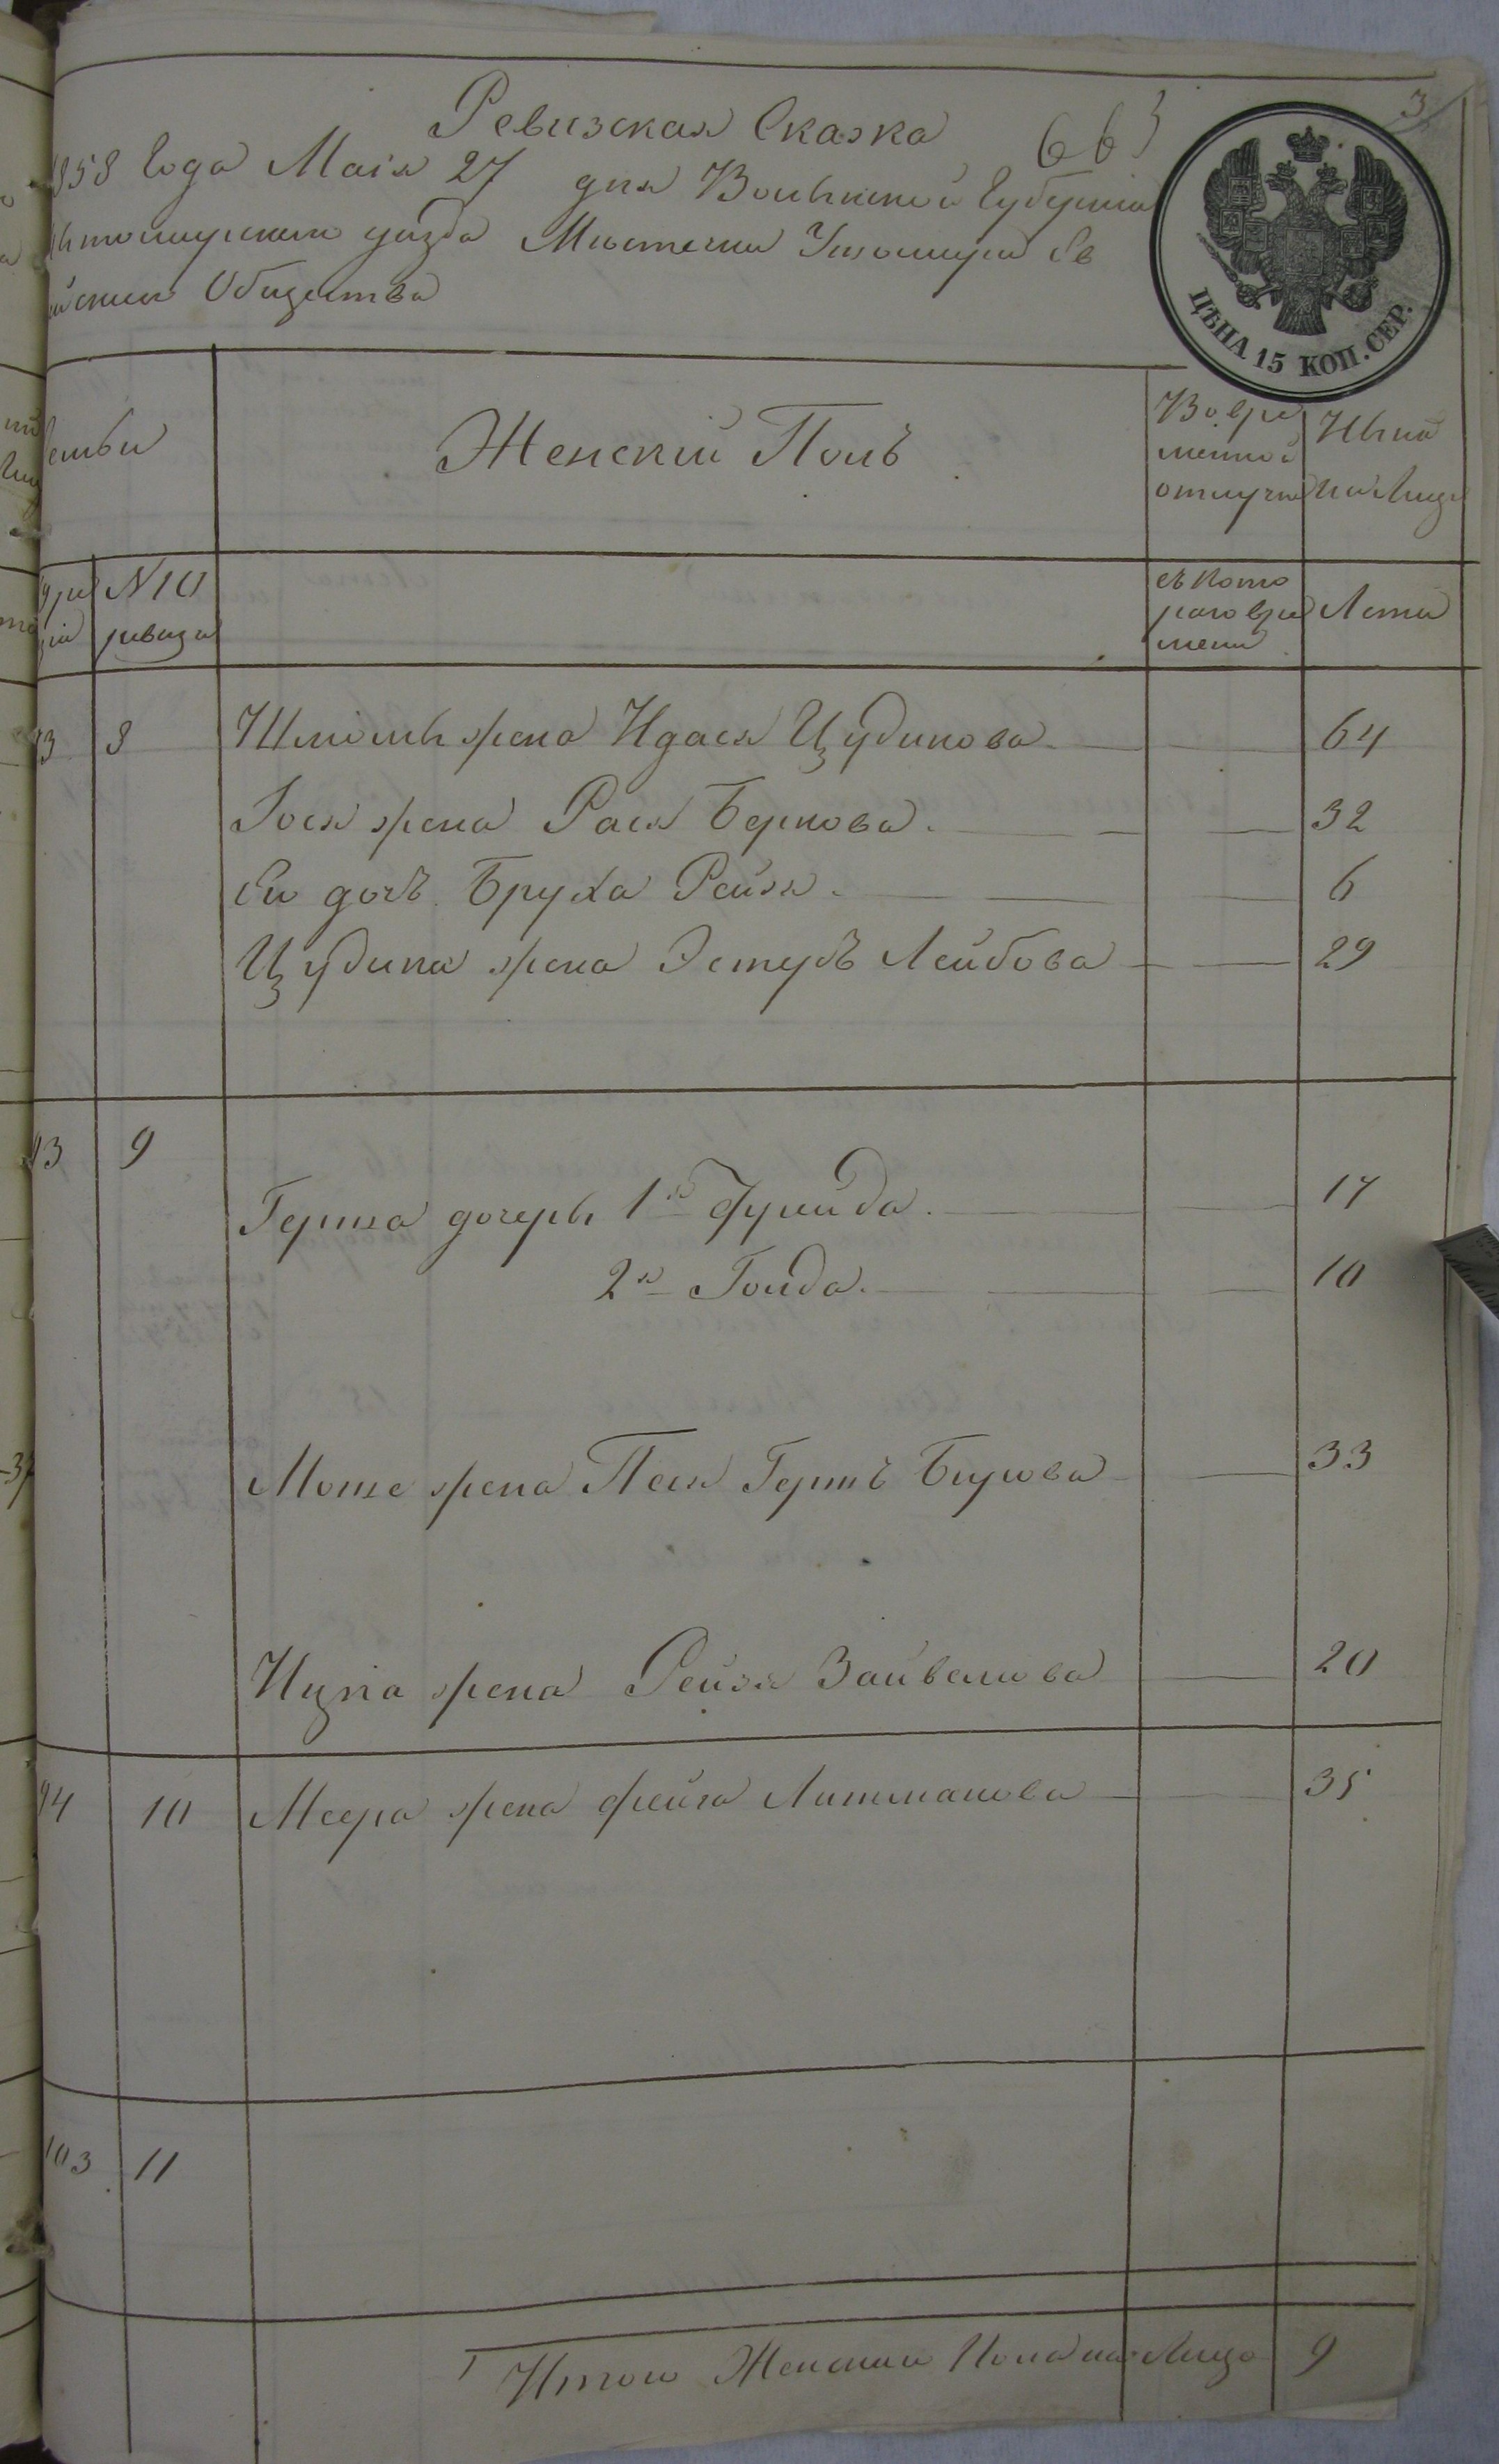 3
663
Ревизская Сказка
1858 Года Маія 27 дня Волынской Губерніи
Житомирскаго уезда Местечка Ушомира Ев
рейскаго Общества
ЦѢНА 15 КОП. СЕР.
Семьи
Женскій Полъ
Во вре
менной
отлучке
Ныне
на Лицо
N 10
ревизіи
съ кото
раго вре
мени
Лета
93 8 Шліомы жена Идася Цудикова 64
Іося жена Рася Беркова 32
Ея дочь Бруха Рейзя 6
Цудика жена Эстеръ Лейбова 29
93 9
Герша дочеры 1я Фрейда 17
2я Голда 10
Моше жена Песя Гершъ Берова 33
Ицка жена Рейзя Зайвелиова 20
94 10 Меера жена Фейга Литманова 35
103 11
Итого Женскаго Пола на Лицо 9